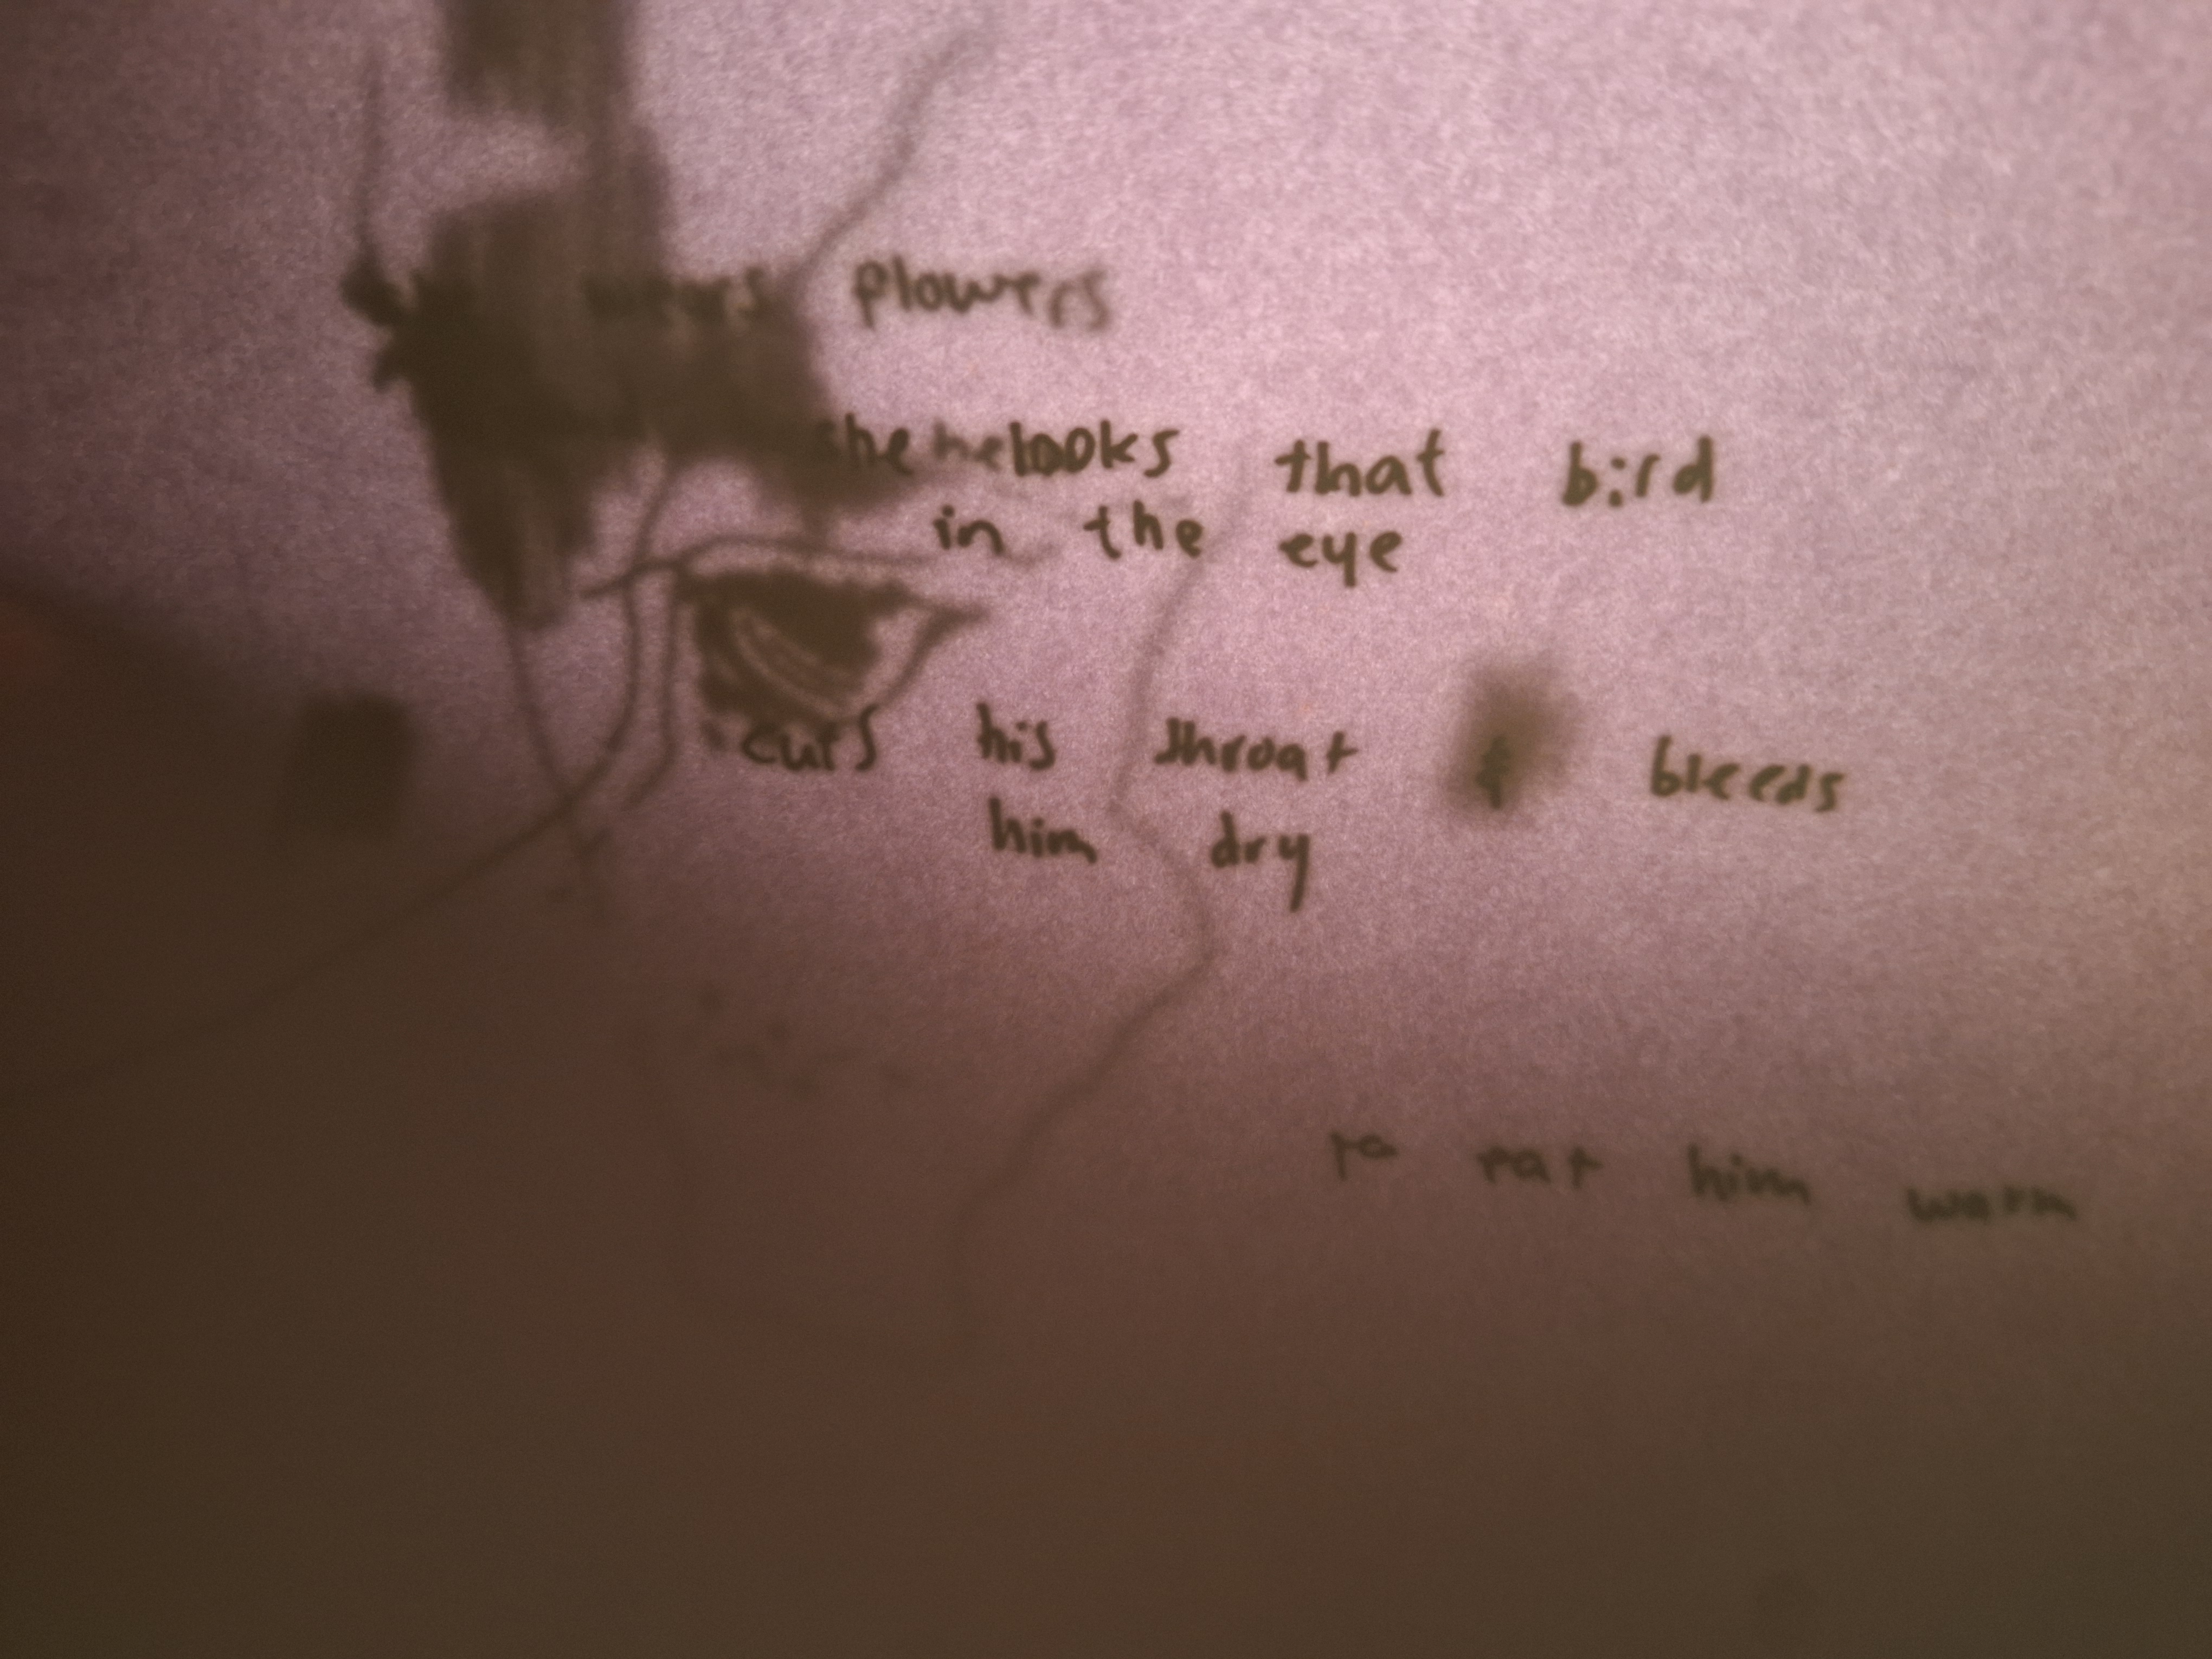 wears flowers
she he looks that bird
in the eye
cuts his throat & bleeds
him dry
to eat him warm